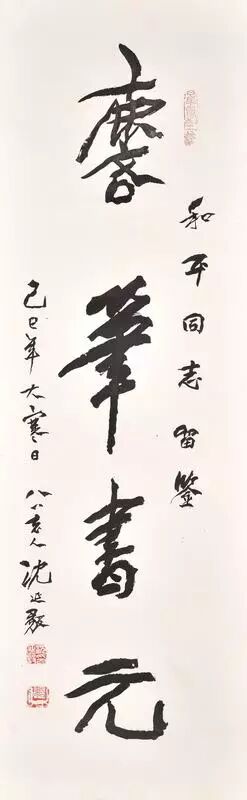 和平同志留鑒
麐筆書元
己巳年大寒日 八八老人沈延毅